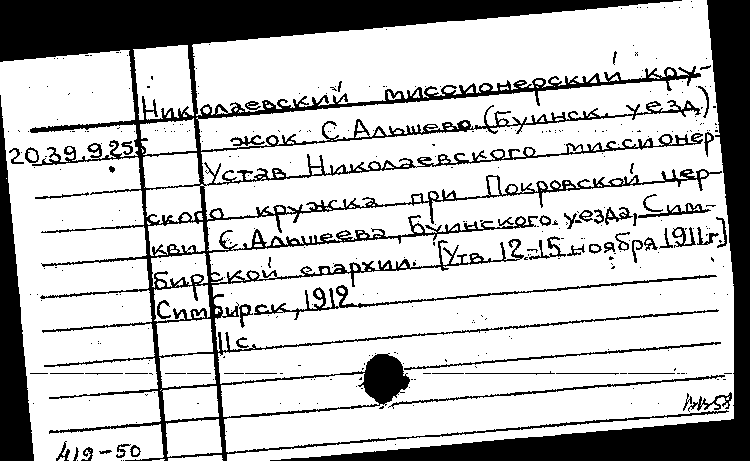 Николаевский миссионерский кру-
20.39.9.255 жок. С. Альшево. (Буинск. уезд).
Устав Николаевского миссионер-
ского кружка при Покровской цер-
кви С. Альшеева, Буинского уезда, Сим-
бирской епархии. [Утв. 12-15 ноября 1911 г.]
Симбирск, 1912.
11 с.
419-50